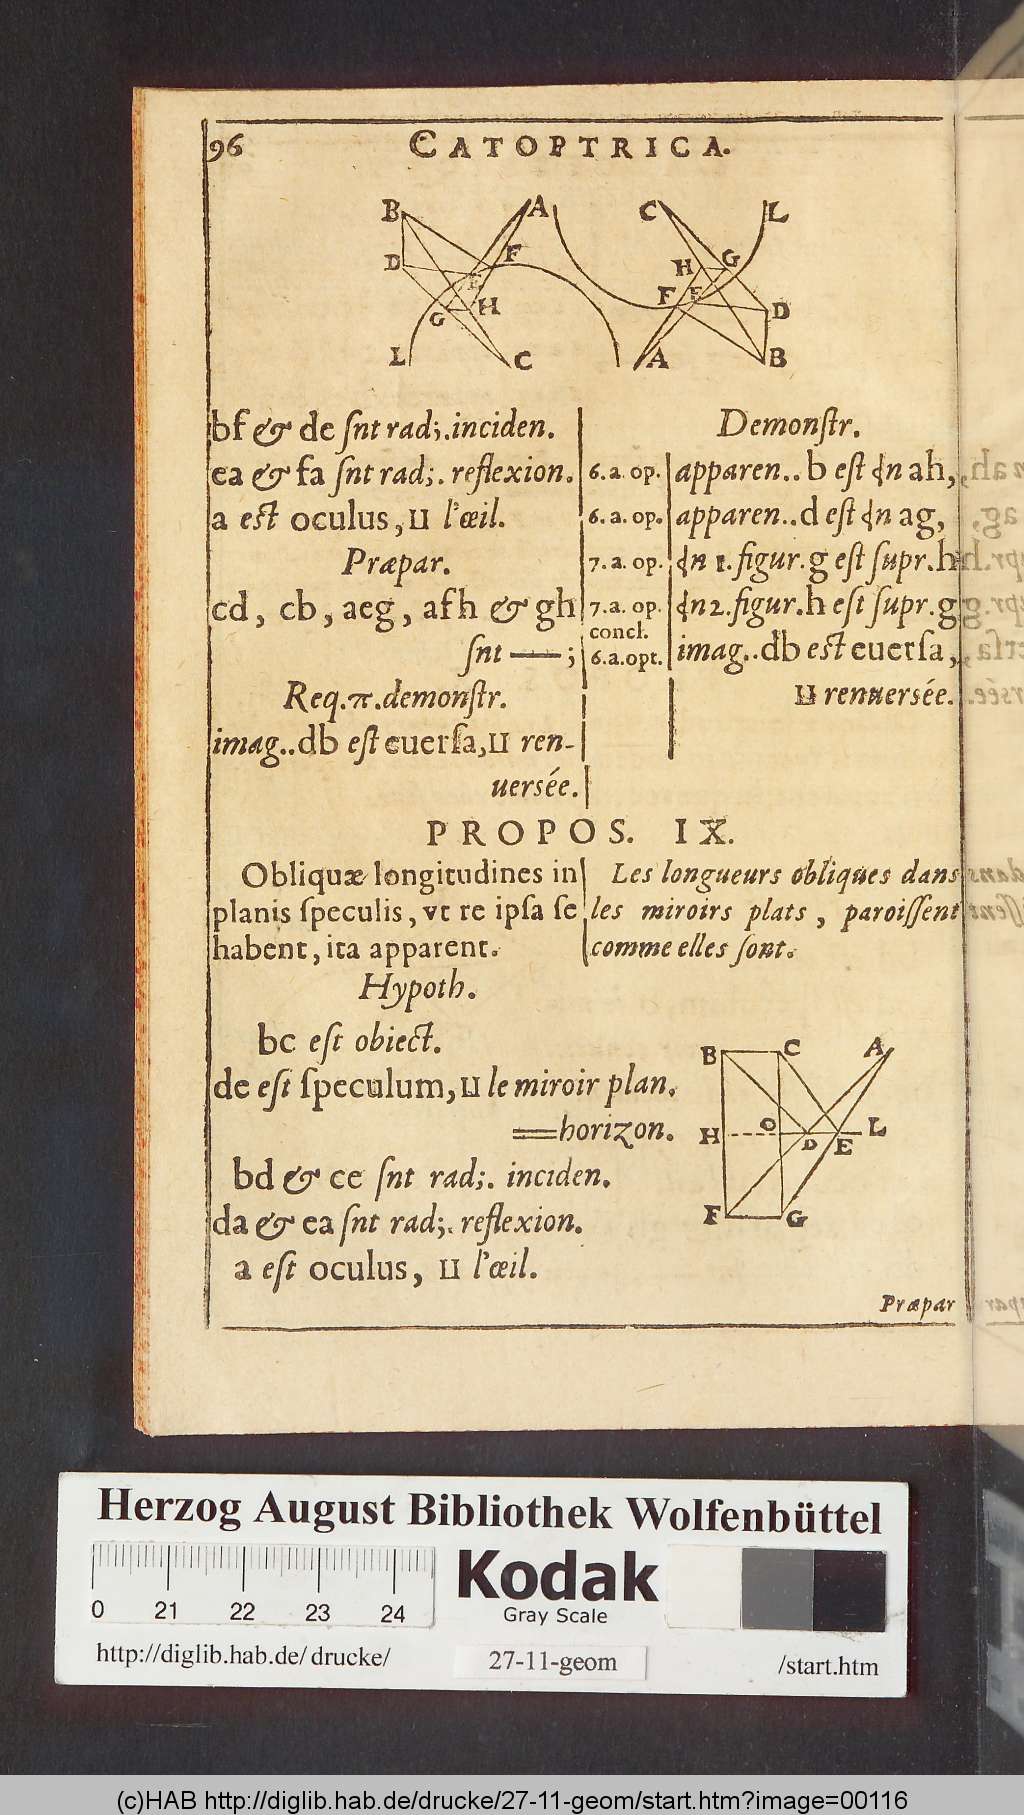 96 CATOPTRICA.
B A C L
D F H G
E F E
G H D
L C A B
bf & de ſnt rad;. inciden.
ea & fa ſnt rad;. reflexion.
a est oculus, ⊔ l'œil.
Præpar.
cd, cb, aeg, afh & gh
ſnt —;
Req. π. demonſtr.
imag.. db eſt euerſa, ⊔ ren-
uersée.
Demonſtr.
6. a. op. apparen.. b eſt ɖn ah,
6. a. op. apparen.. d eſt ɖn ag,
7. a. op. ɖn 1. figur. g eſt ſupr. h
7. a. op. ɖn 2. figur. h eſt ſupr. g
concl.
6. a. opt. imag.. db est euerſa,
⊔ renuersée.
PROPOS. IX.
Obliquæ longitudines in
planis ſpeculis, vt re ipſa ſe
habent, ita apparent.
Les longueurs obliques dans
les miroirs plats, paroiſſent
comme elles ſont.
Hypoth.
bc eſt obiect.
de eſt ſpeculum, ⊔ le miroir plan.
== horizon.
bd & ce ſnt rad;. inciden.
da & ea ſnt rad;. reflexion.
a eſt oculus, ⊔ l'œil.
B C A
H O D E L
F G
Præpar
Herzog August Bibliothek Wolfenbüttel
0 21 22 23 24
Kodak
Gray Scale
http://diglib.hab.de/drucke/ 27-11-geom /start.htm
(c)HAB http://diglib.hab.de/drucke/27-11-geom/start.htm?image=00116